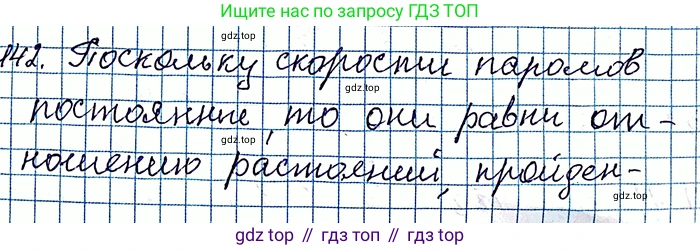 Ищите нас по запросу ГДЗ ТОП
gdz.top
142. Поскольку скорости паромов
gdz.top
постоянние, то они равни от-
gdz.top
ношению растояний, пройден-
gdz.top
gdz.top // гдз топ // гдз.топ